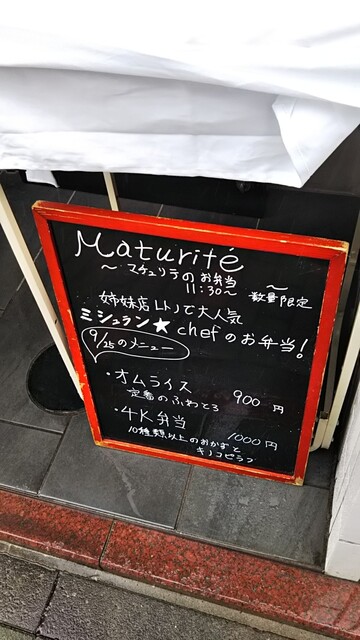 Maturité
～マチュリテのお弁当～
11:30～ 数量限定
姉妹店レトノで大人気
ミシュラン★chefのお弁当!
9/25のメニュー
・オムライス 900円
定番のふわとろ
・4K弁当 1000円
10種類以上のおかずと
キノコピラフ